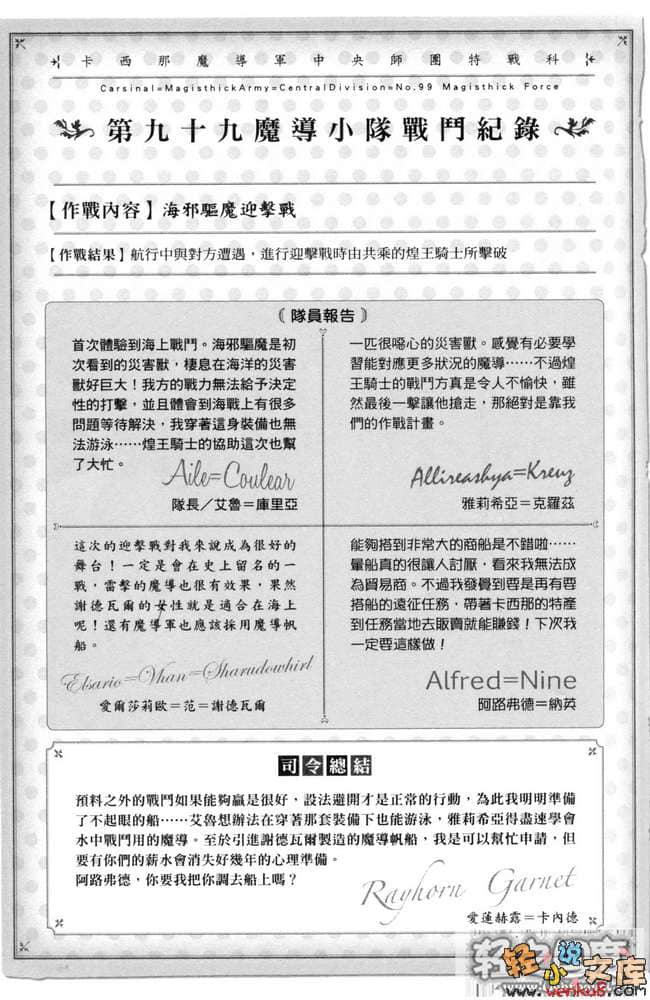 卡西那魔導軍中央師團特戰科
Carsinal=MagisthickArmy=CentralDivision=No.99 Magisthick Force
第九十九魔導小隊戰鬥紀錄
【作戰內容】海邪驅魔迎擊戰
【作戰結果】航行中與對方遭遇，進行迎擊戰時由共乘的煌王騎士所擊破
〘隊員報告〙
首次體驗到海上戰鬥。海邪驅魔是初
次看到的災害獸，棲息在海洋的災害
獸好巨大！我方的戰力無法給予決定
性的打擊，並且體會到海戰上有很多
問題等待解決，我穿著這身裝備也無
法游泳……煌王騎士的協助這次也幫
了大忙。
Aile=Coulear
隊長／艾魯＝庫里亞
一匹很噁心的災害獸。感覺有必要學
習能對應更多狀況的魔導……不過煌
王騎士的戰鬥方真是令人不愉快，雖
然最後一擊讓他搶走，那絕對是靠我
們的作戰計畫。
Allireashya=Kreuz
雅莉希亞＝克羅茲
這次的迎擊戰對我來說成為很好的
舞台！一定是會在史上留名的一
戰，雷擊的魔導也很有效果，果然
謝德瓦爾的女性就是適合在海上
呢！還有魔導軍也應該採用魔導帆
船。
Elsario=Vhan=Sharudowhirl
愛爾莎莉歐＝范＝謝德瓦爾
能夠搭到非常大的商船是不錯啦……
暈船真的很讓人討厭，看來我無法成
為貿易商。不過我發覺到要是再有要
搭船的遠征任務，帶著卡西那的特產
到任務當地去販賣就能賺錢！下次我
一定要這樣做！
Alfred=Nine
阿路弗德＝納英
司令總結
預料之外的戰鬥如果能夠贏是很好，設法避開才是正常的行動，為此我明明準備
了不起眼的船……艾魯想辦法在穿著那套裝備下也能游泳，雅莉希亞得盡速學會
水中戰鬥用的魔導。至於引進謝德瓦爾製造的魔導帆船，我是可以幫忙申請，但
要有你們的薪水會消失好幾年的心理準備。
阿路弗德，你要我把你調去船上嗎？
Rayhorn Garnet
愛蓮赫露＝卡內德
轻小说文库
www.wenku8.com